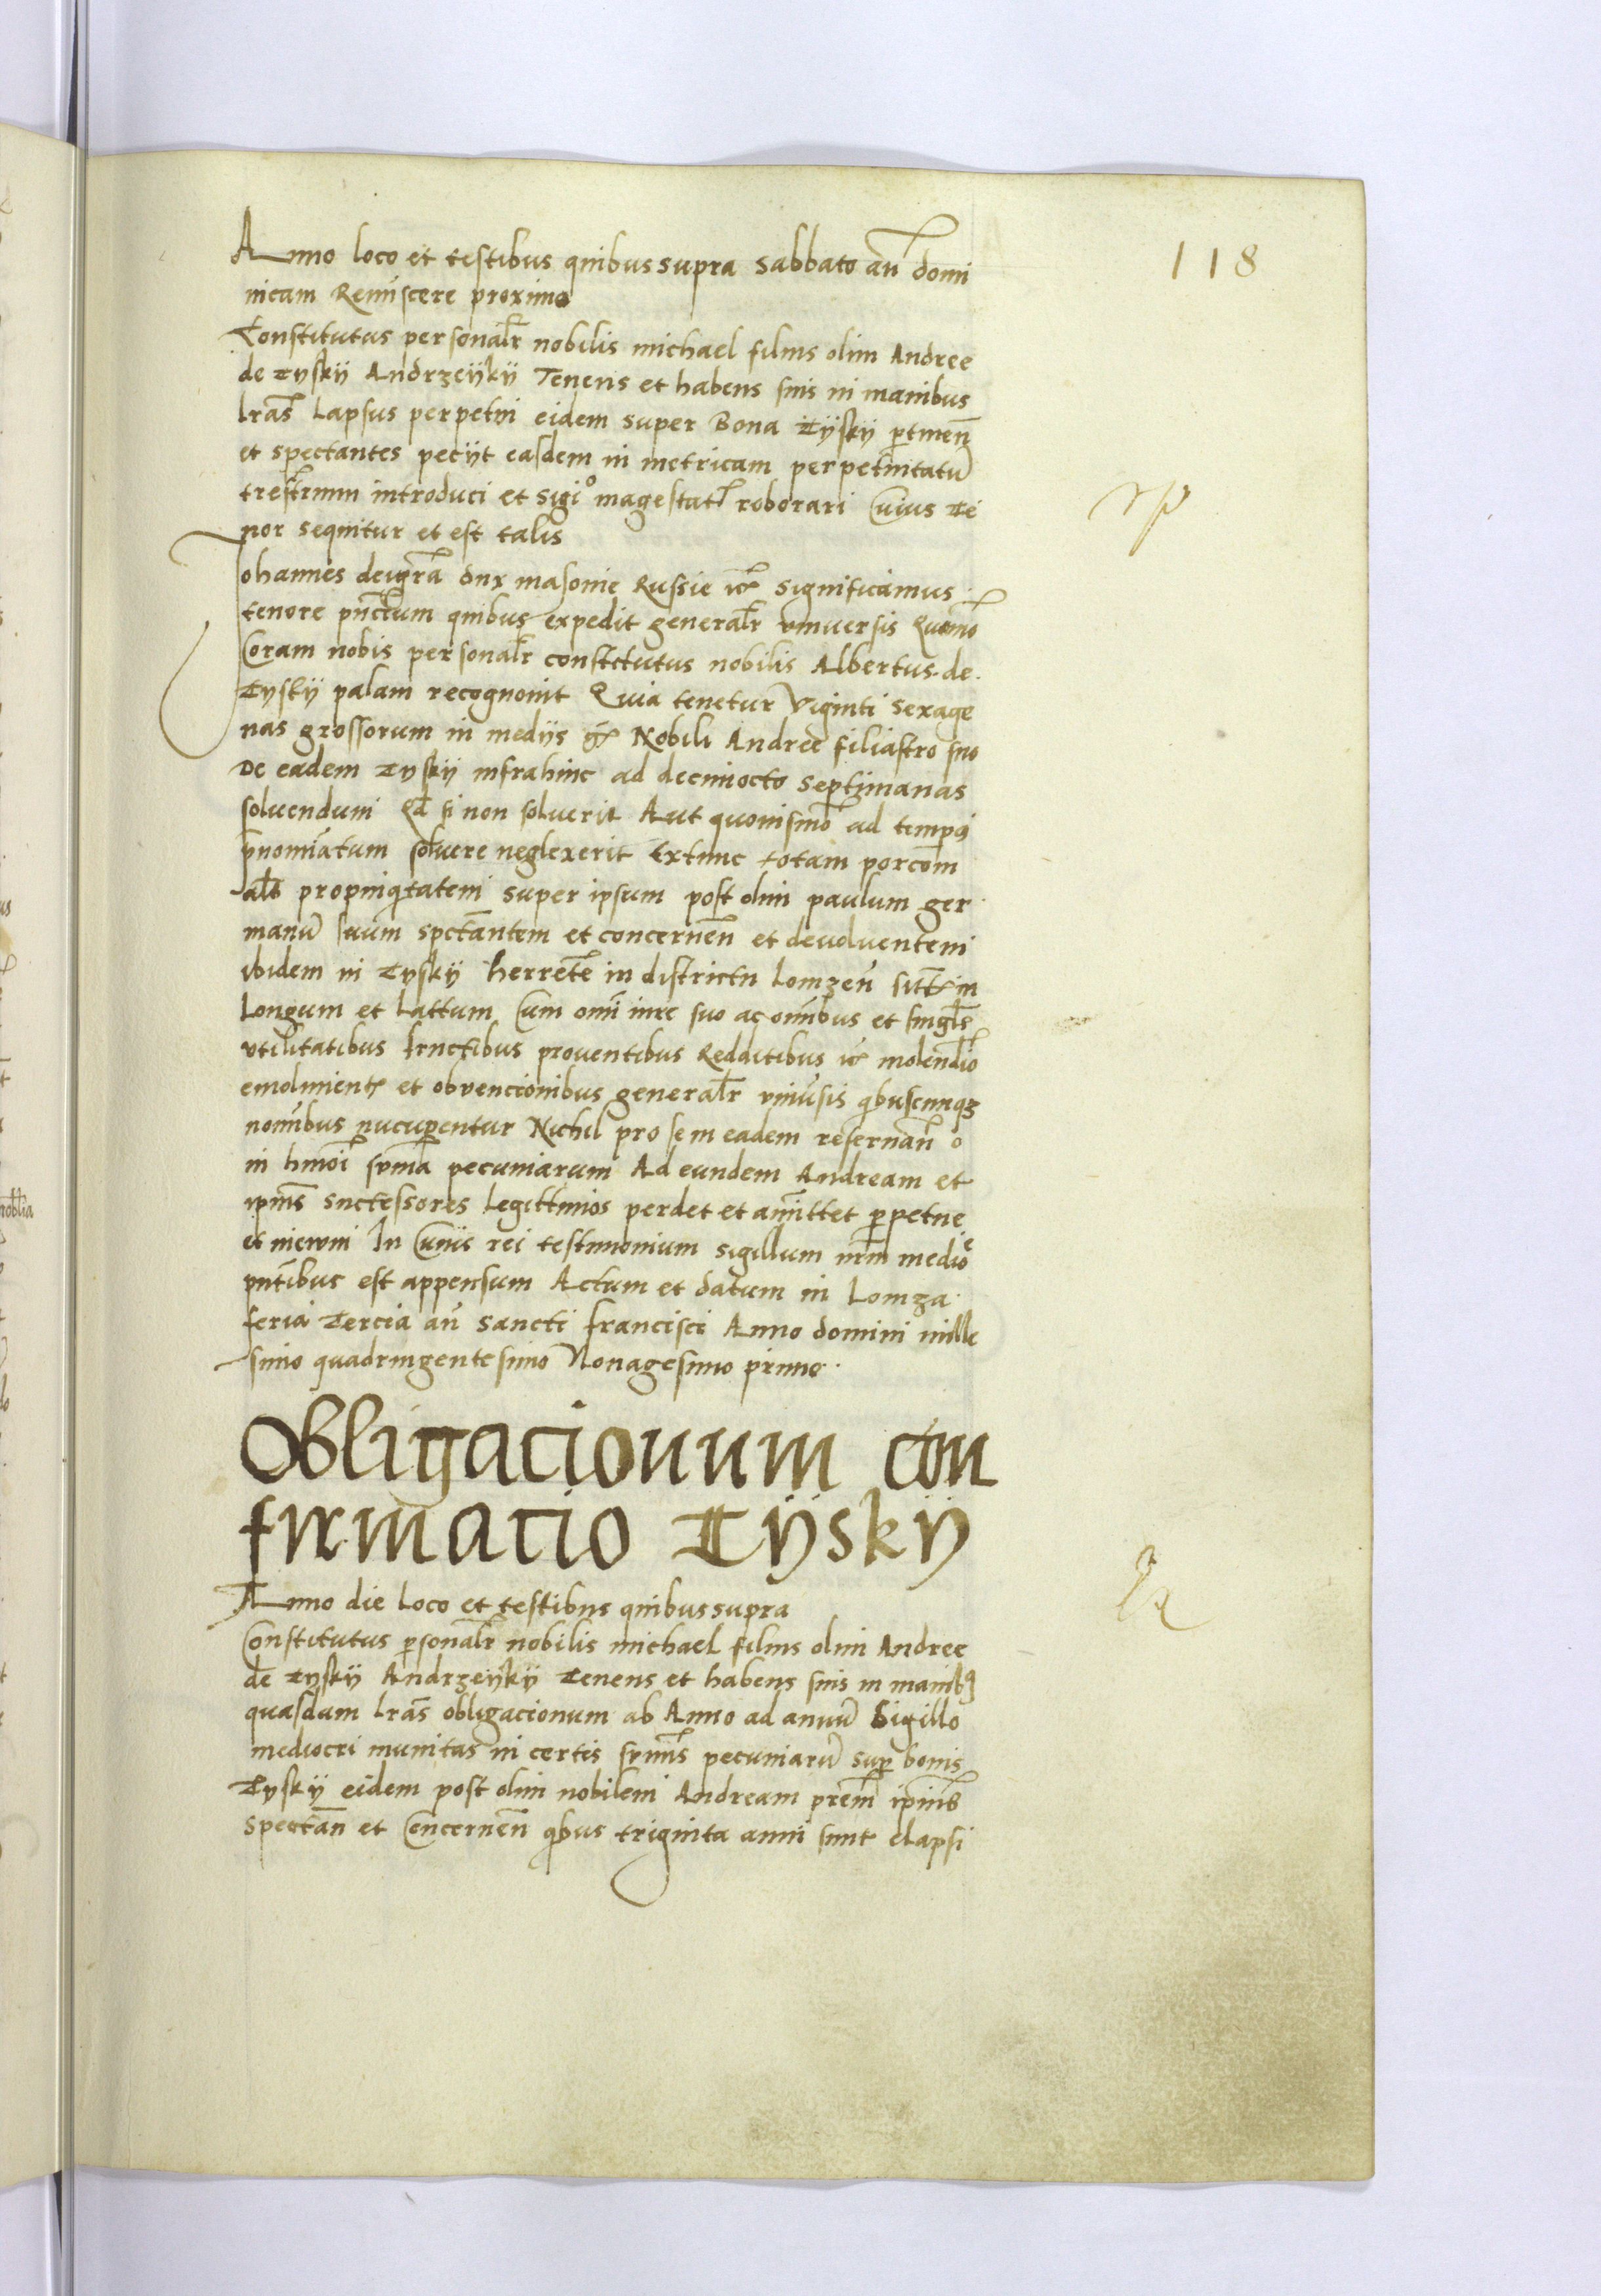 118
Anno loco et testibus quibus supra Sabbato an̄ domi
nicam Reminiscere proximo
Constitutus personalr̄ nobilis michael filius olim Andree
de Tyskÿ Andrzeÿkÿ Tenens et habens suis in manibus
lrās Lapsus perpetui eidem super Bona Tÿskÿ ptinen̄
et spectantes pecÿt easdem in metricam perpetuitatū
trestrium introduci et Sigiᵒ magestatȩ roborari Cuius Te
nor sequitur et est talis
Johannes dei grā dux masouie Russie etc Significamus
tenore pn̄cium quibus expedit generalr̄ vniuersis Quomō
Coram nobis personalr̄ constitutus nobilis Albertus de
Tyskÿ palam recognouit Quia tenetur Viginti Sexage
nas grossorum in medÿs gr̄ Nobili Andree filiastro suo
De eadem Tyskÿ infrahinc ad decimocto Septimanas
soluendum Qd̄ si non soluerit Aut quouismō ad tempꝯ
pnomīatum soluere neglexerit Extunc totam porcōm
als̄ propinqͥtatem super ipsum post olim paulum ger
manū suum spctāntem et concernen̄ et deuoluentem
ibidem in Tyskÿ herrentē in districtu Lomzen̄ sitt̄ in
Longum et Lattum Cum omī iure suo ac omībus et singlis̄
vtilitatibus fructibus prouentibus Redditibus etc molendīo
emolimentȩ et obvencionibus generalr̄ vniūsis qͥbuscunqꝫ
nomībus nucupentur Nichil pro se in eadem reseruan̄ o
in hmoī sum̄a pecuniarum Ad eundem Andream et
ipīus Successores Legittimos perdet et amittet ppetue
et in ewm In Cuius rei testimonium sigillum nrm̄ medioͤ
pn̄tibus est appensum Actum et datum in Lomza
feria Tercia an̄ Sancti francisci Anno domini mille
simo quadringentesimo Nonagesimo primo
Obligacionum con
firmacio Tÿskÿ
Anno die Loco et testibus quibus supra
Constitutus psonalr̄ nobilis michael filius olim Andree
de Tyskÿ Andrzeÿkÿ Tenens et habens suis in manibꝯ
quasdam lrās obligacionum ab Anno ad annū Sigillo
mediocri munitas in certis sum̄is pecuniarū sup bonis
Tyskÿ eidem post olim nobilem Andream prēm ipīus
Spectan̄ et Concernen̄ qͥbus triginta anni sunt elapsi